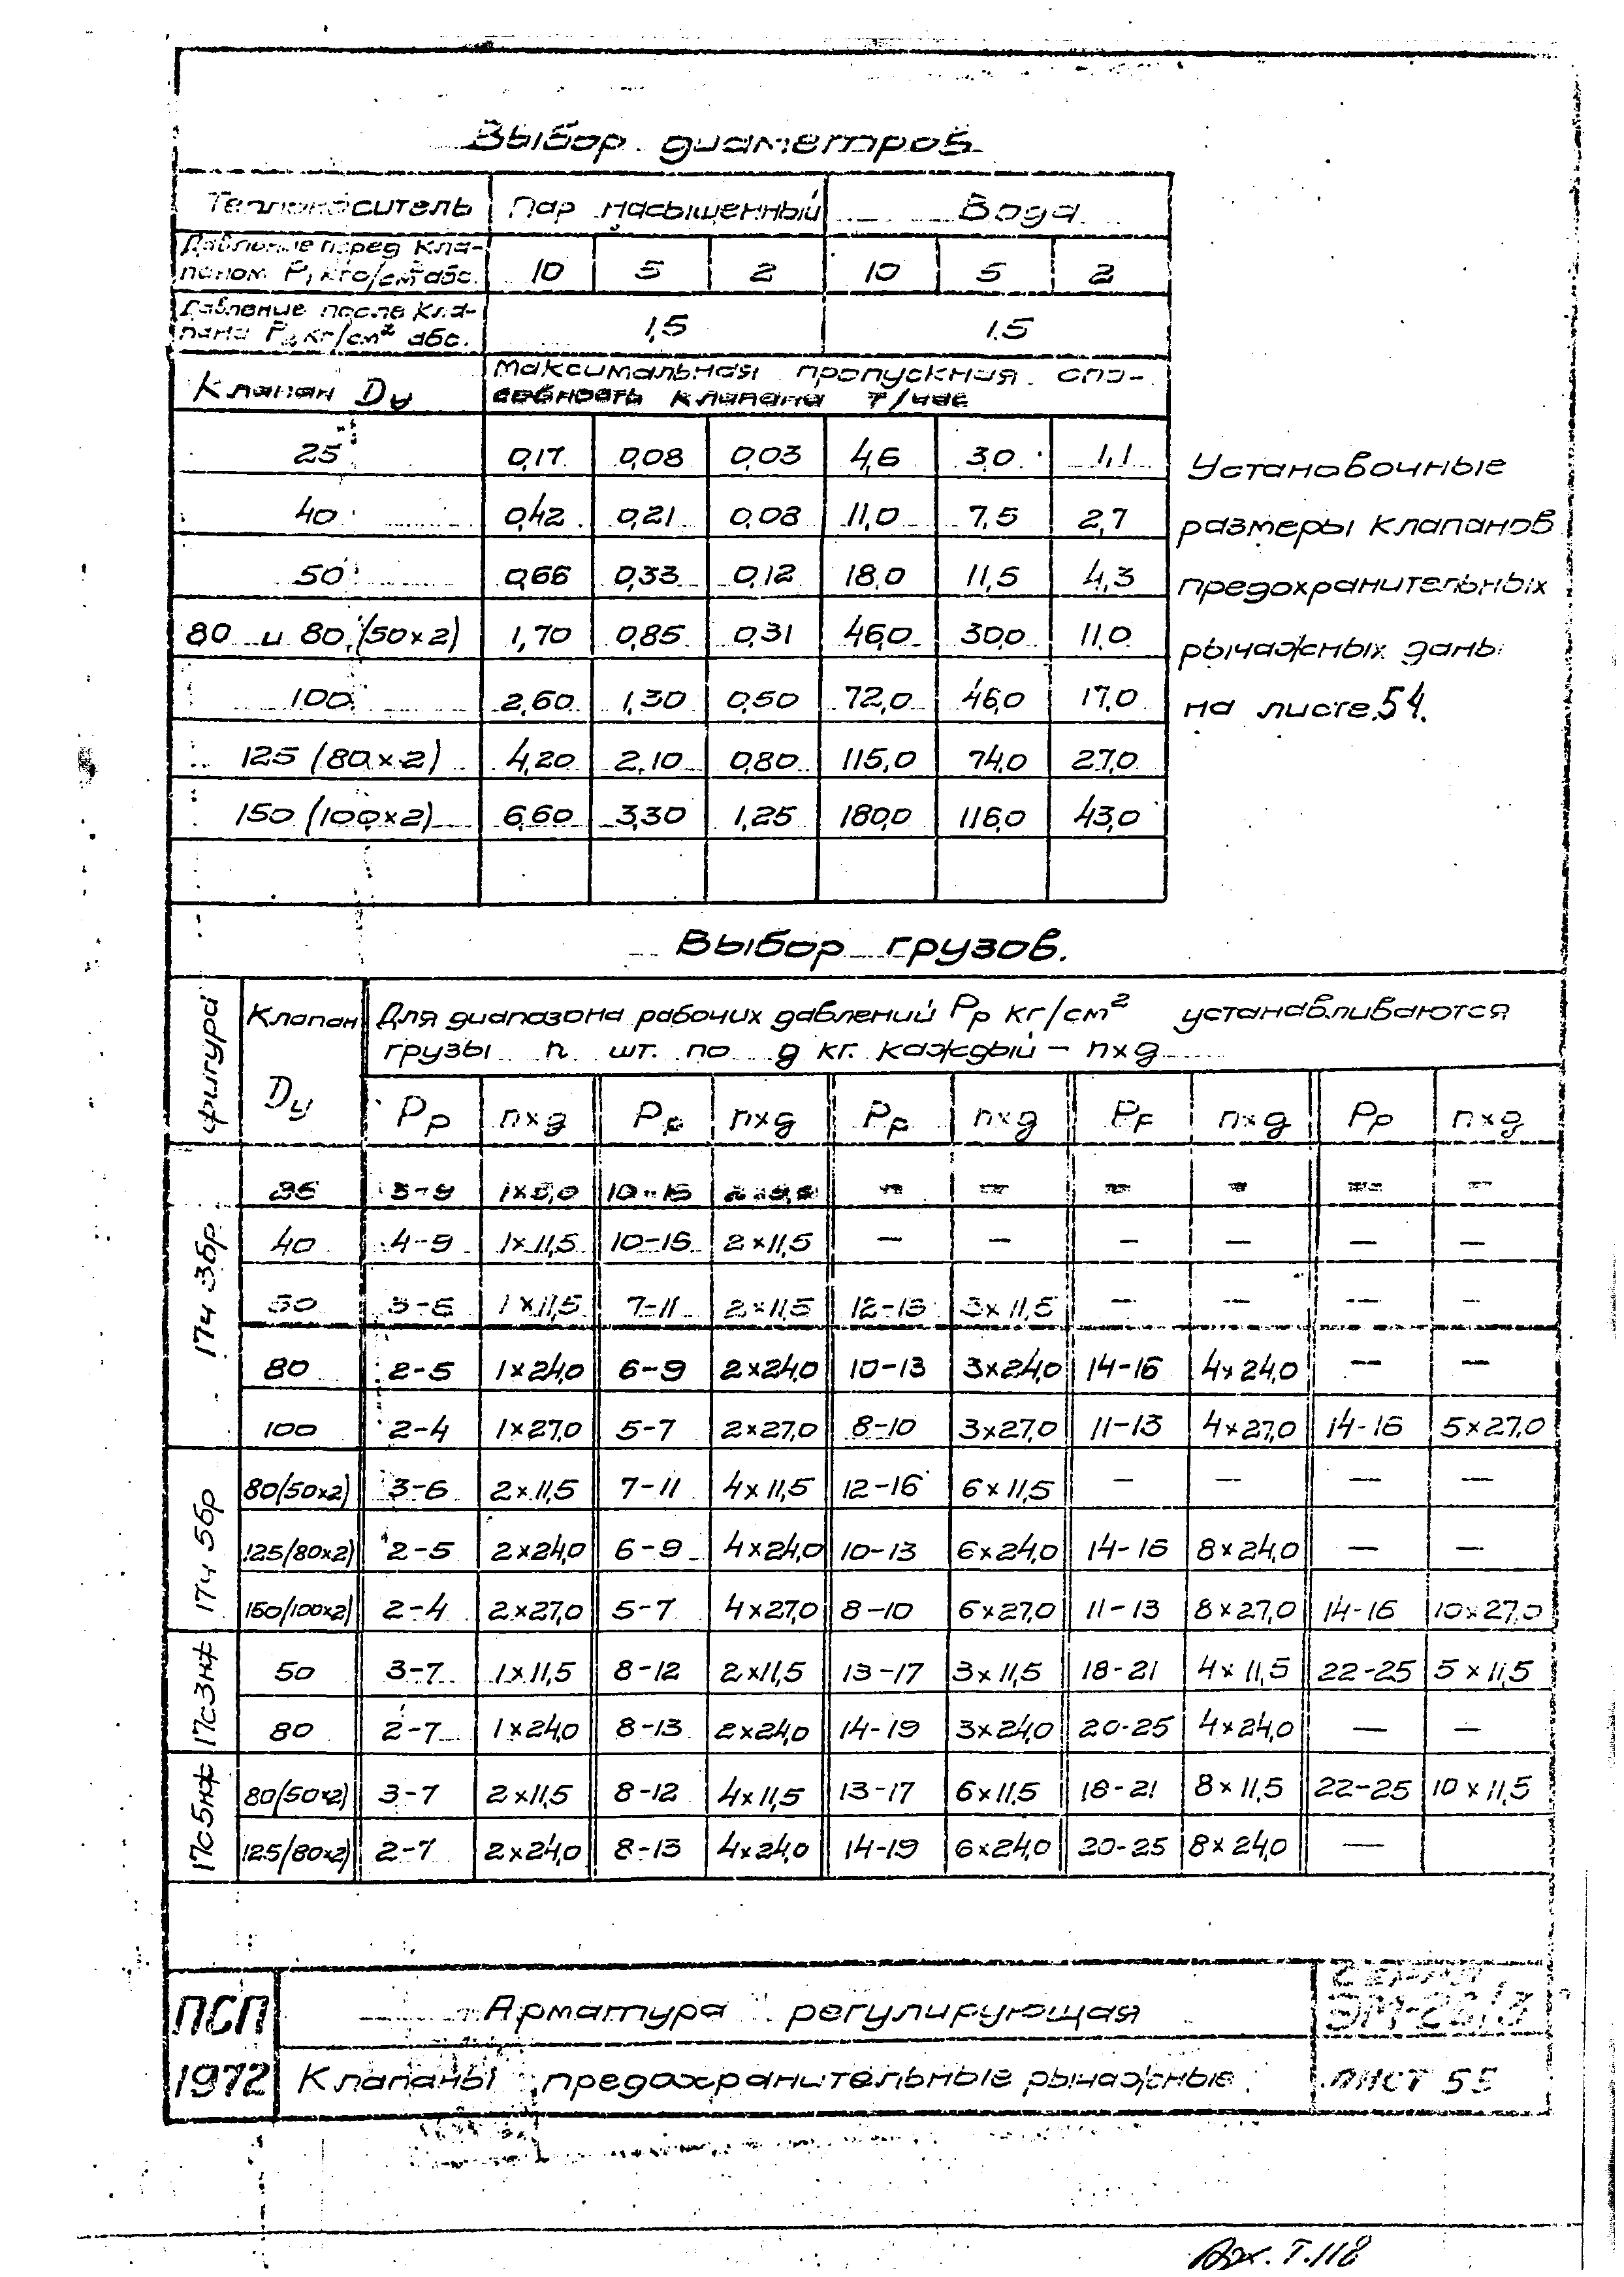 Выбор диаметров
Теплоноситель Пар насыщенный Вода
Давление перед кла-
паном P₁ кгс/см² абс. 10 5 2 10 5 2
Давление после кла-
пана P₂ кг/см² абс. 1,5 1.5
Клапан Dу Максимальная пропускная спо-
собность клапана т/час
25 0,17 0,08 0,03 4,6 3,0 1,1
40 0,42 0,21 0,08 11,0 7,5 2,7
50 0,66 0,33 0,12 18,0 11,5 4,3
80 и 80 (50x2) 1,70 0,85 0,31 46,0 30,0 11,0
100 2,60 1,30 0,50 72,0 46,0 17,0
125 (80x2) 4,20 2,10 0,80 115,0 74,0 27,0
150 (100x2) 6,60 3,30 1,25 180,0 116,0 43,0
Установочные
размеры клапанов
предохранительных
рычажных даны
на листе 54.
Выбор грузов.
фигура Клапан Dу Для диапазона рабочих давлений Pр кг/см² устанавливаются
грузы n шт. по g кг. каждый – nxg
Pр nxg Pр nxg Pр nxg Pр nxg Pр nxg
17ч 3бр
10-16 — — — — — —
40 4-9 1x11,5 10-16 2x11,5 — — — — — —
50 3-6 1x11,5 7-11 2x11,5 12-16 3x11,5 — — — —
80 2-5 1x24,0 6-9 2x24,0 10-13 3x24,0 14-16 4x24,0 — —
100 2-4 1x27,0 5-7 2x27,0 8-10 3x27,0 11-13 4x27,0 14-16 5x27,0
17ч 5бр
80/50x2) 3-6 2x11,5 7-11 4x11,5 12-16 6x11,5 — — — —
125/80x2) 2-5 2x24,0 6-9 4x24,0 10-13 6x24,0 14-16 8x24,0 — —
150/100x2) 2-4 2x27,0 5-7 4x27,0 8-10 6x27,0 11-13 8x27,0 14-16 10x27,0
17с3нж
50 3-7 1x11,5 8-12 2x11,5 13-17 3x11,5 18-21 4x11,5 22-25 5x11,5
80 2-7 1x24,0 8-13 2x24,0 14-19 3x24,0 20-25 4x24,0 — —
17с5нж
80/50x2) 3-7 2x11,5 8-12 4x11,5 13-17 6x11,5 18-21 8x11,5 22-25 10x11,5
125/80x2) 2-7 2x24,0 8-13 4x24,0 14-19 6x24,0 20-25 8x24,0 —
ПСП Арматура регулирующая
1972 Клапаны предохранительные рычажные лист 55
Т.118